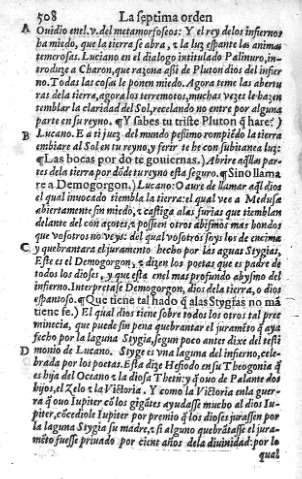 508 La septima orden
A Ouidio enel.v.del metamorfoseos: Y el rey delos infiernos
ha miedo, que la tierra se abra, z la luz espante las animas
temerosas. Luciano en el dialogo intitulado Palinuro, in-
troduze a Charon, que razona assi de Pluton dios del infier
no. Todas las cosas le ponen miedo. Agora teme las abertu
ras dela tierra, agora los terremotos, muchas vezes le hazen
temblar la claridad del Sol, recelando no entre por alguna
parte en su reyno. ¶ Y sabes tu triste Pluton q̃ hare?)
B Lucano. E a ti juez del mundo pessimo rompiẽdo la tierra
embiare al Sol en tu reyno, y ferir te he con subitanea luz:
¶ Las bocas por do te gouiernas.) Abrire aq̃llas par
tes dela tierra por dõde tu reyno esta seguro. ¶ Sino llama
re a Demogorgon.) Lucano: O aure de llamar aq̃l dios
el qual inuocado tiembla la tierra: el qual vee a Medusa
abiertamente sin miedo, z castiga alas furias que tiemblan
delante del con açotes, z posseen otros abismos mas hondos
que vosotros no veys: del qual vosotros soys los de encima
C y quebrantara el juramento hecho por las aguas Stygias,
Este es el Demogorgon, z dizen los poetas que es padre de
todos los dioses, y que esta enel mas profundo abysmo del
infierno. Interpretase Demogorgon, dios dela tierra, o dios
espantoso. ¶ Que tiene tal hado q̃ alas Stygias no mã
tiene fe.) El qual dios tiene sobre todos los otros tal pree
minecia, que puede sin pena quebrantar el juramẽto q̃ aya
fecho por la laguna Stygia, segun poco antes dixe del testi
D monio de Lucano. Styge es vna laguna del infierno, cele-
brada por los poetas. Esta dize Hesiodo en su Theogonia q̃
es hija del Oceano z la diosa Thetis: y q̃ ouo de Palante dos
hijos, el Zelo z la Victoria. Y como la Victoria enla guer-
ra q̃ ouo Iupiter cõ los gigãtes ayudasse mucho al dios Iu-
piter, cõcediole Iupiter por premio q̃ los dioses jurassen por
la laguna Stygia su madre, z si alguno quebrãtasse el jura-
mẽto fuesse priuado por ciento años dela diuinidad: por lo
qual